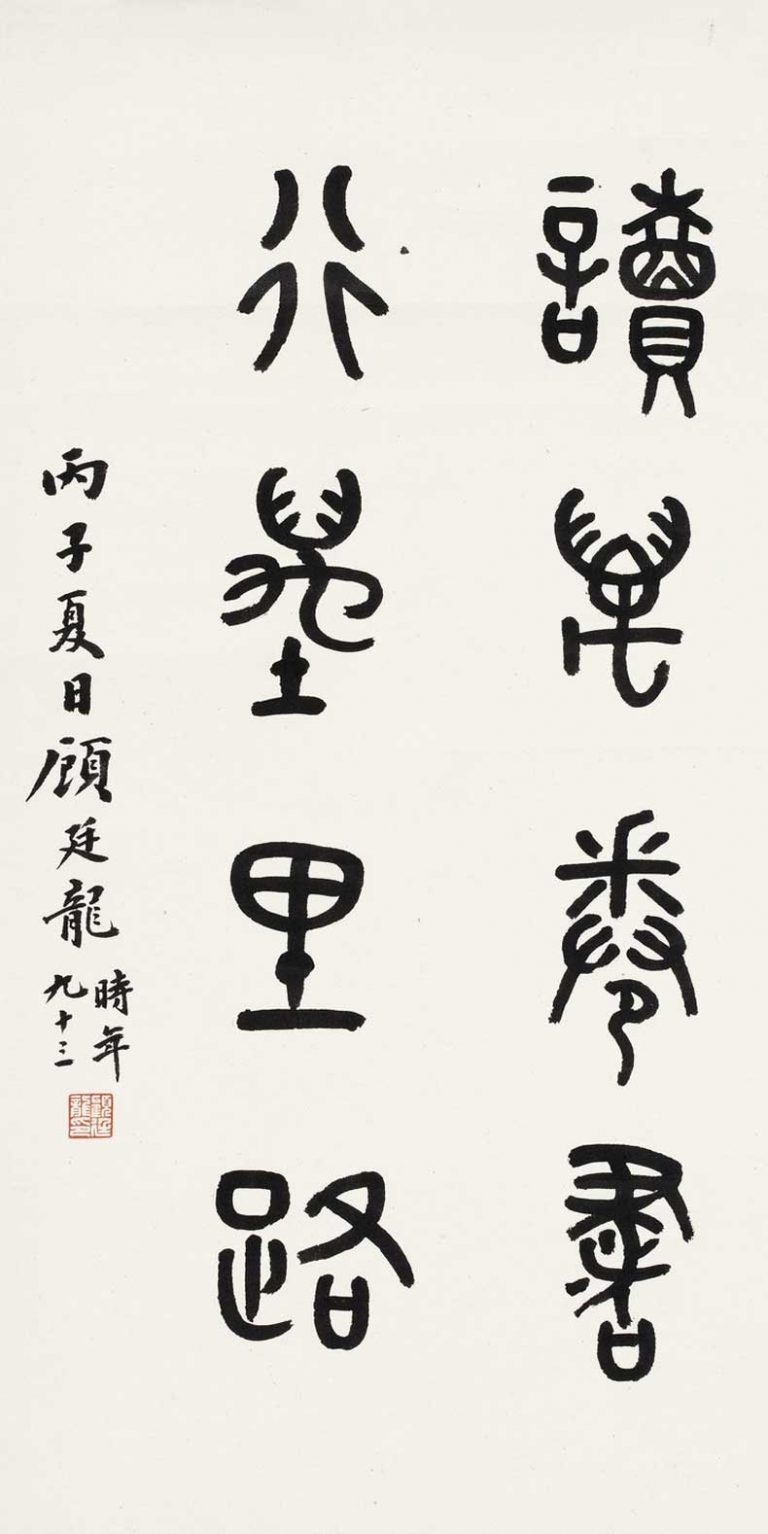 讀萬卷書
行萬里路
丙子夏日顧廷龍
時年
九十三
顧廷
龍印